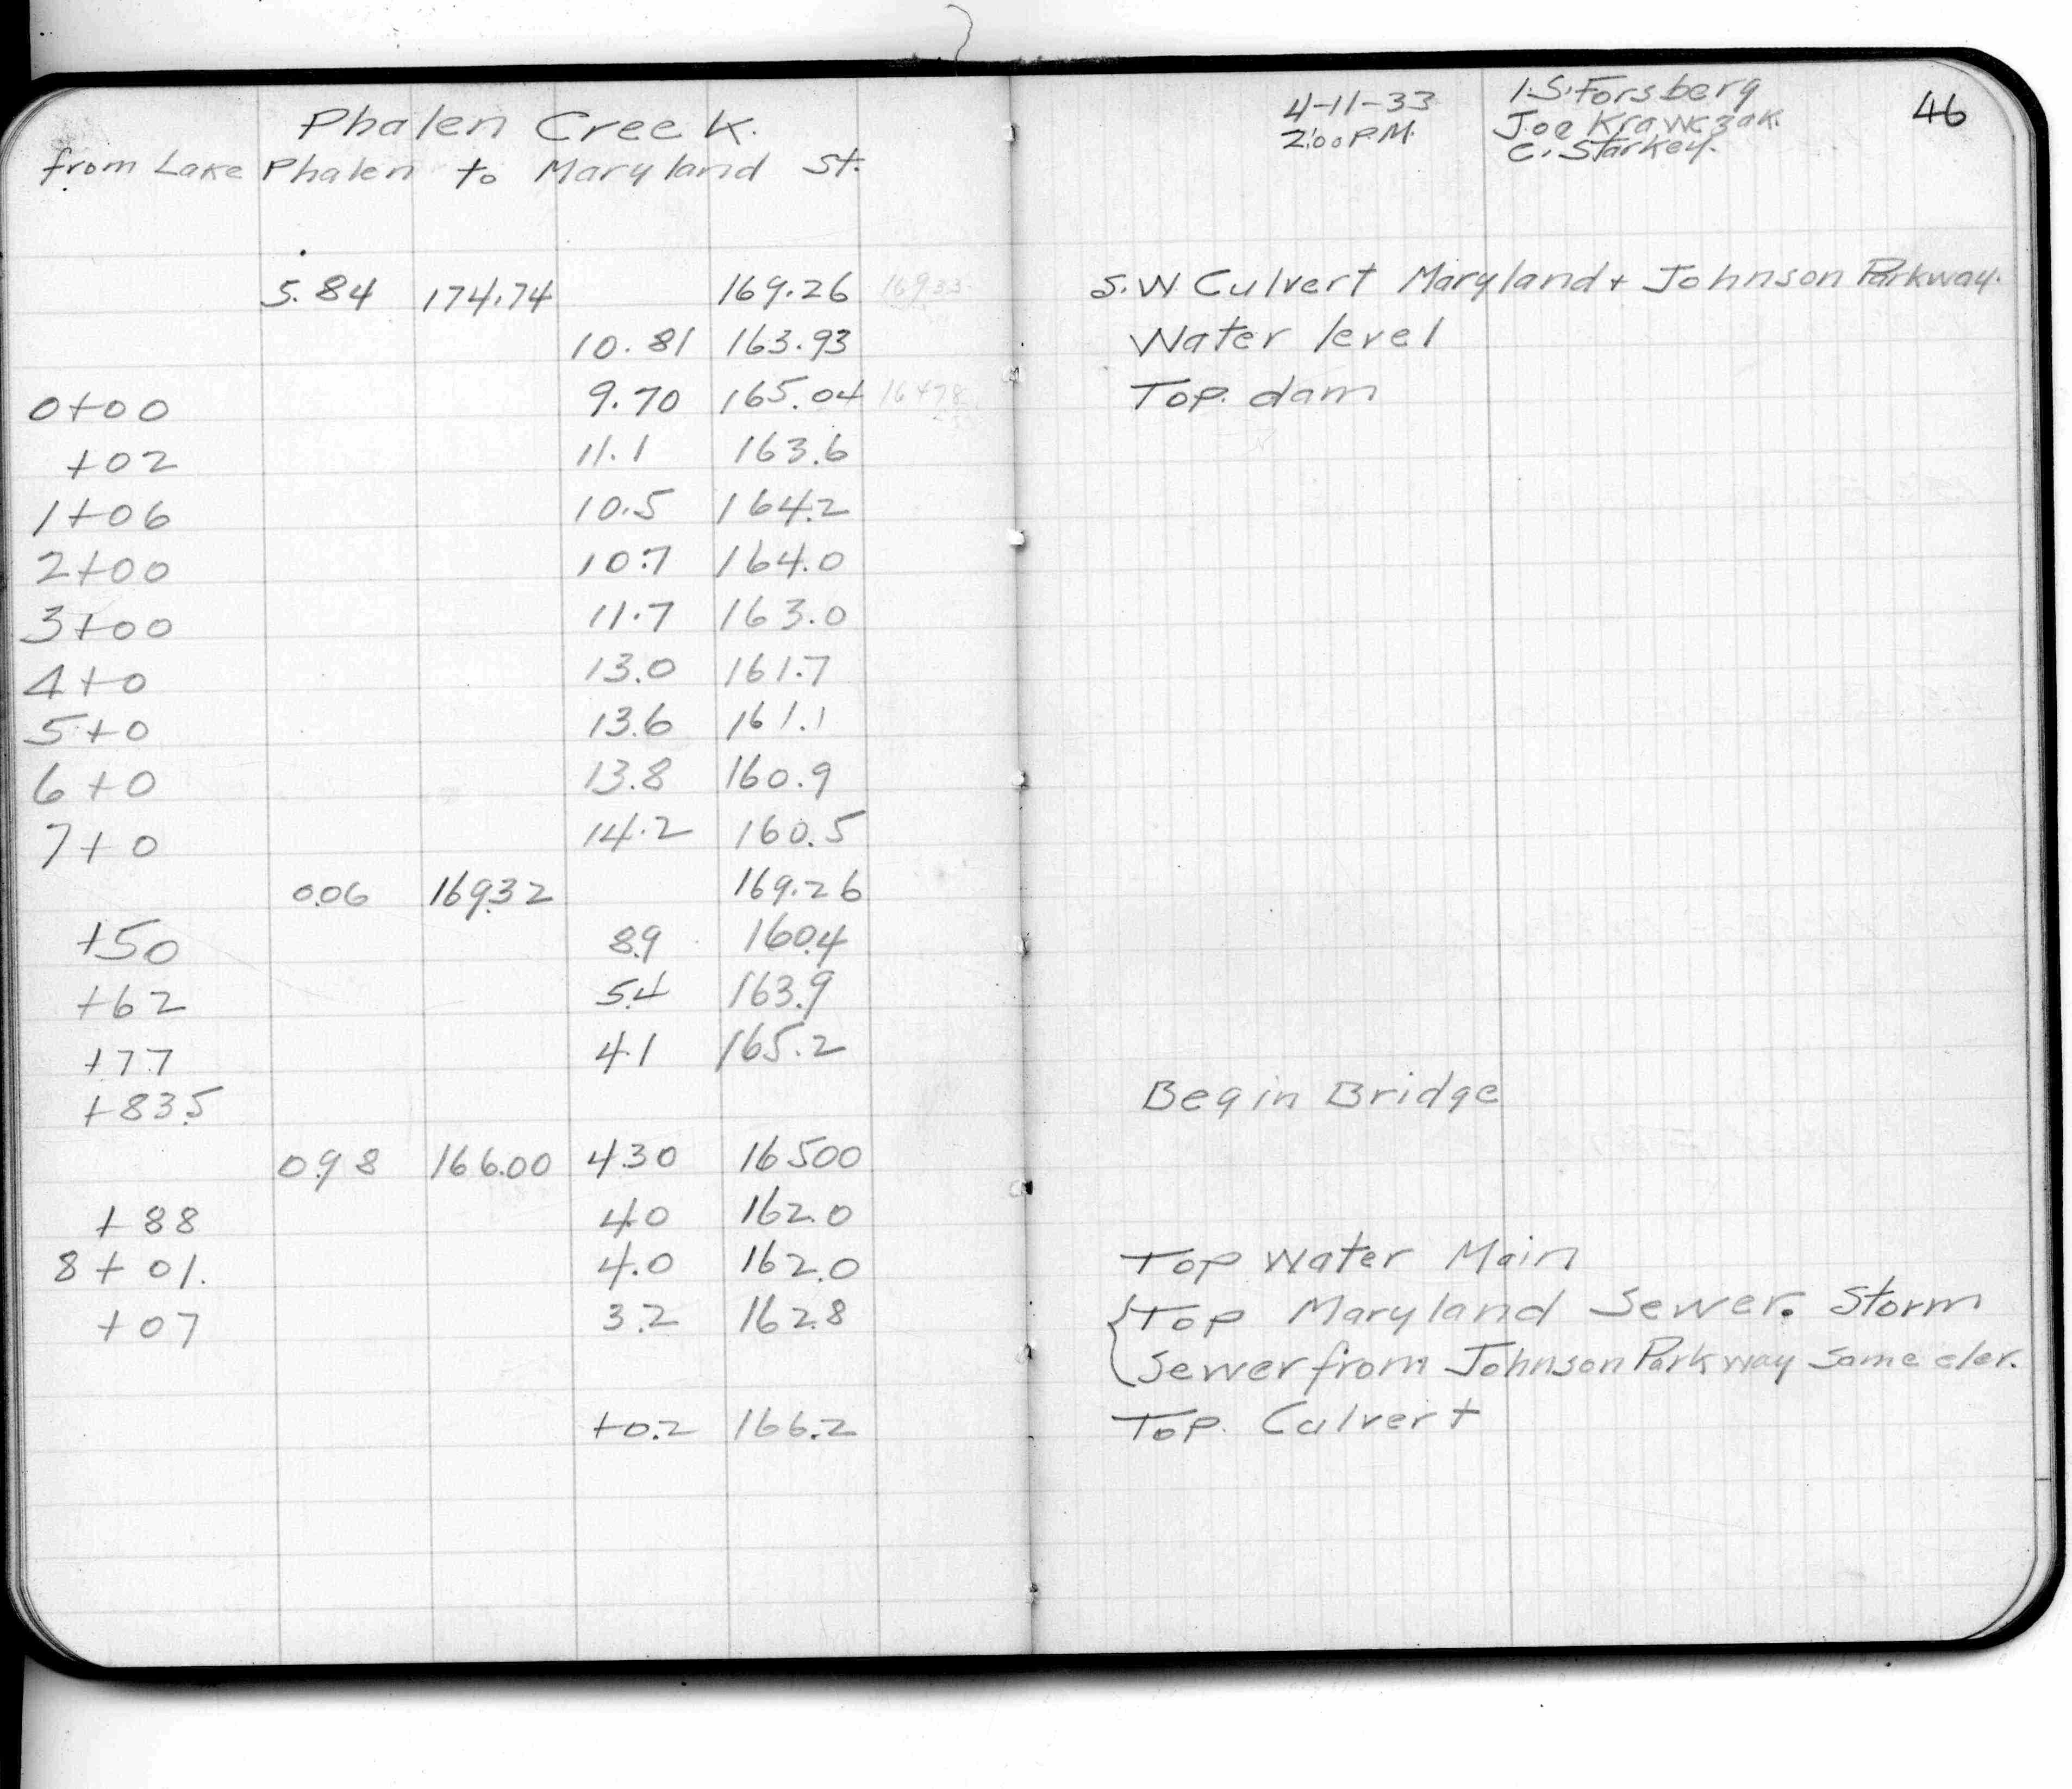 Phalen Creek.
from Lake Phalen to Maryland St.
4-11-33
2:00 P.M.
I.S. Forsberg
Joe Krawczak.
C. Starkey.
46
5.84 174.74 169.26 169.33 S.W. Culvert Maryland + Johnson Parkway.
10.81 163.93 Water level
0+00 9.70 165.04 164.78 Top. dam
+02 11.1 163.6
1+06 10.5 164.2
2+00 10.7 164.0
3+00 11.7 163.0
4+0 13.0 161.7
5+0 13.6 161.1
6+0 13.8 160.9
7+0 14.2 160.5
0.06 169.32 169.26
+50 8.9 160.4
+62 5.4 163.9
+77 4.1 165.2
+83.5 Begin Bridge
0.98 166.00 4.30 16500
+88 4.0 162.0
8+01. 4.0 162.0 Top Water Main
+07 3.2 162.8 Top Maryland Sewer. Storm
Sewer from Johnson Parkway Same elev.
+0.2 166.2 Top. Culvert